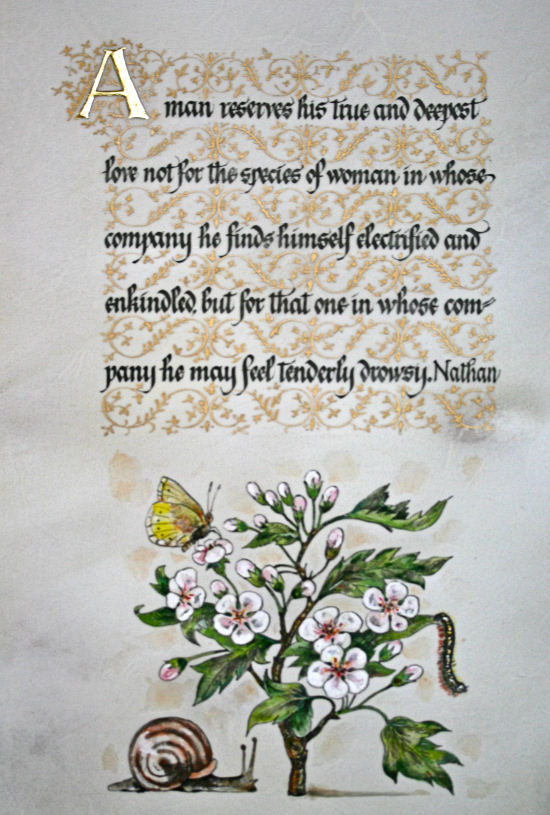 A man reserves his true and deepest
love not for the species of woman in whose
company he finds himself electrified and
enkindled, but for that one in whose com=
pany he may feel tenderly drowsy. Nathan